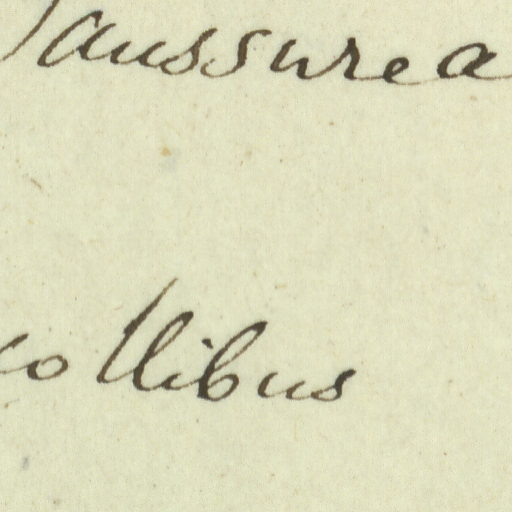 Saussurea
collibus